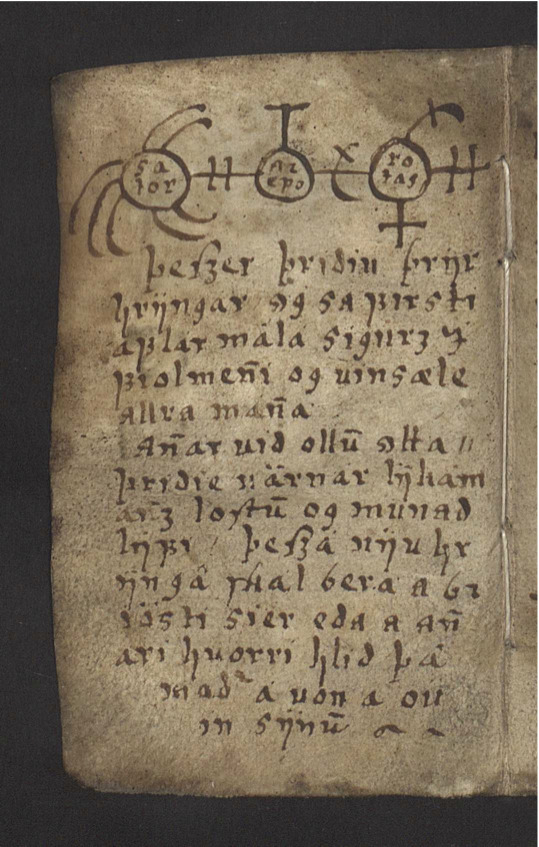 sa
tor
ar
epo
ro
tas
þesser þridiu þrijr
hrijngar og sa firsti
aflar mála sigurz og
fiolmen̄i og uinsæle
allra man̄a
An̄ar uid ollū otta
þridie uärnar lijkam
arz lostū og munad
lijfi þessa niju hr
ijnga skal bera a br
iösti sier eda a an̄
ari huorri hlid þá
mad² á uon á óu
in sijnū